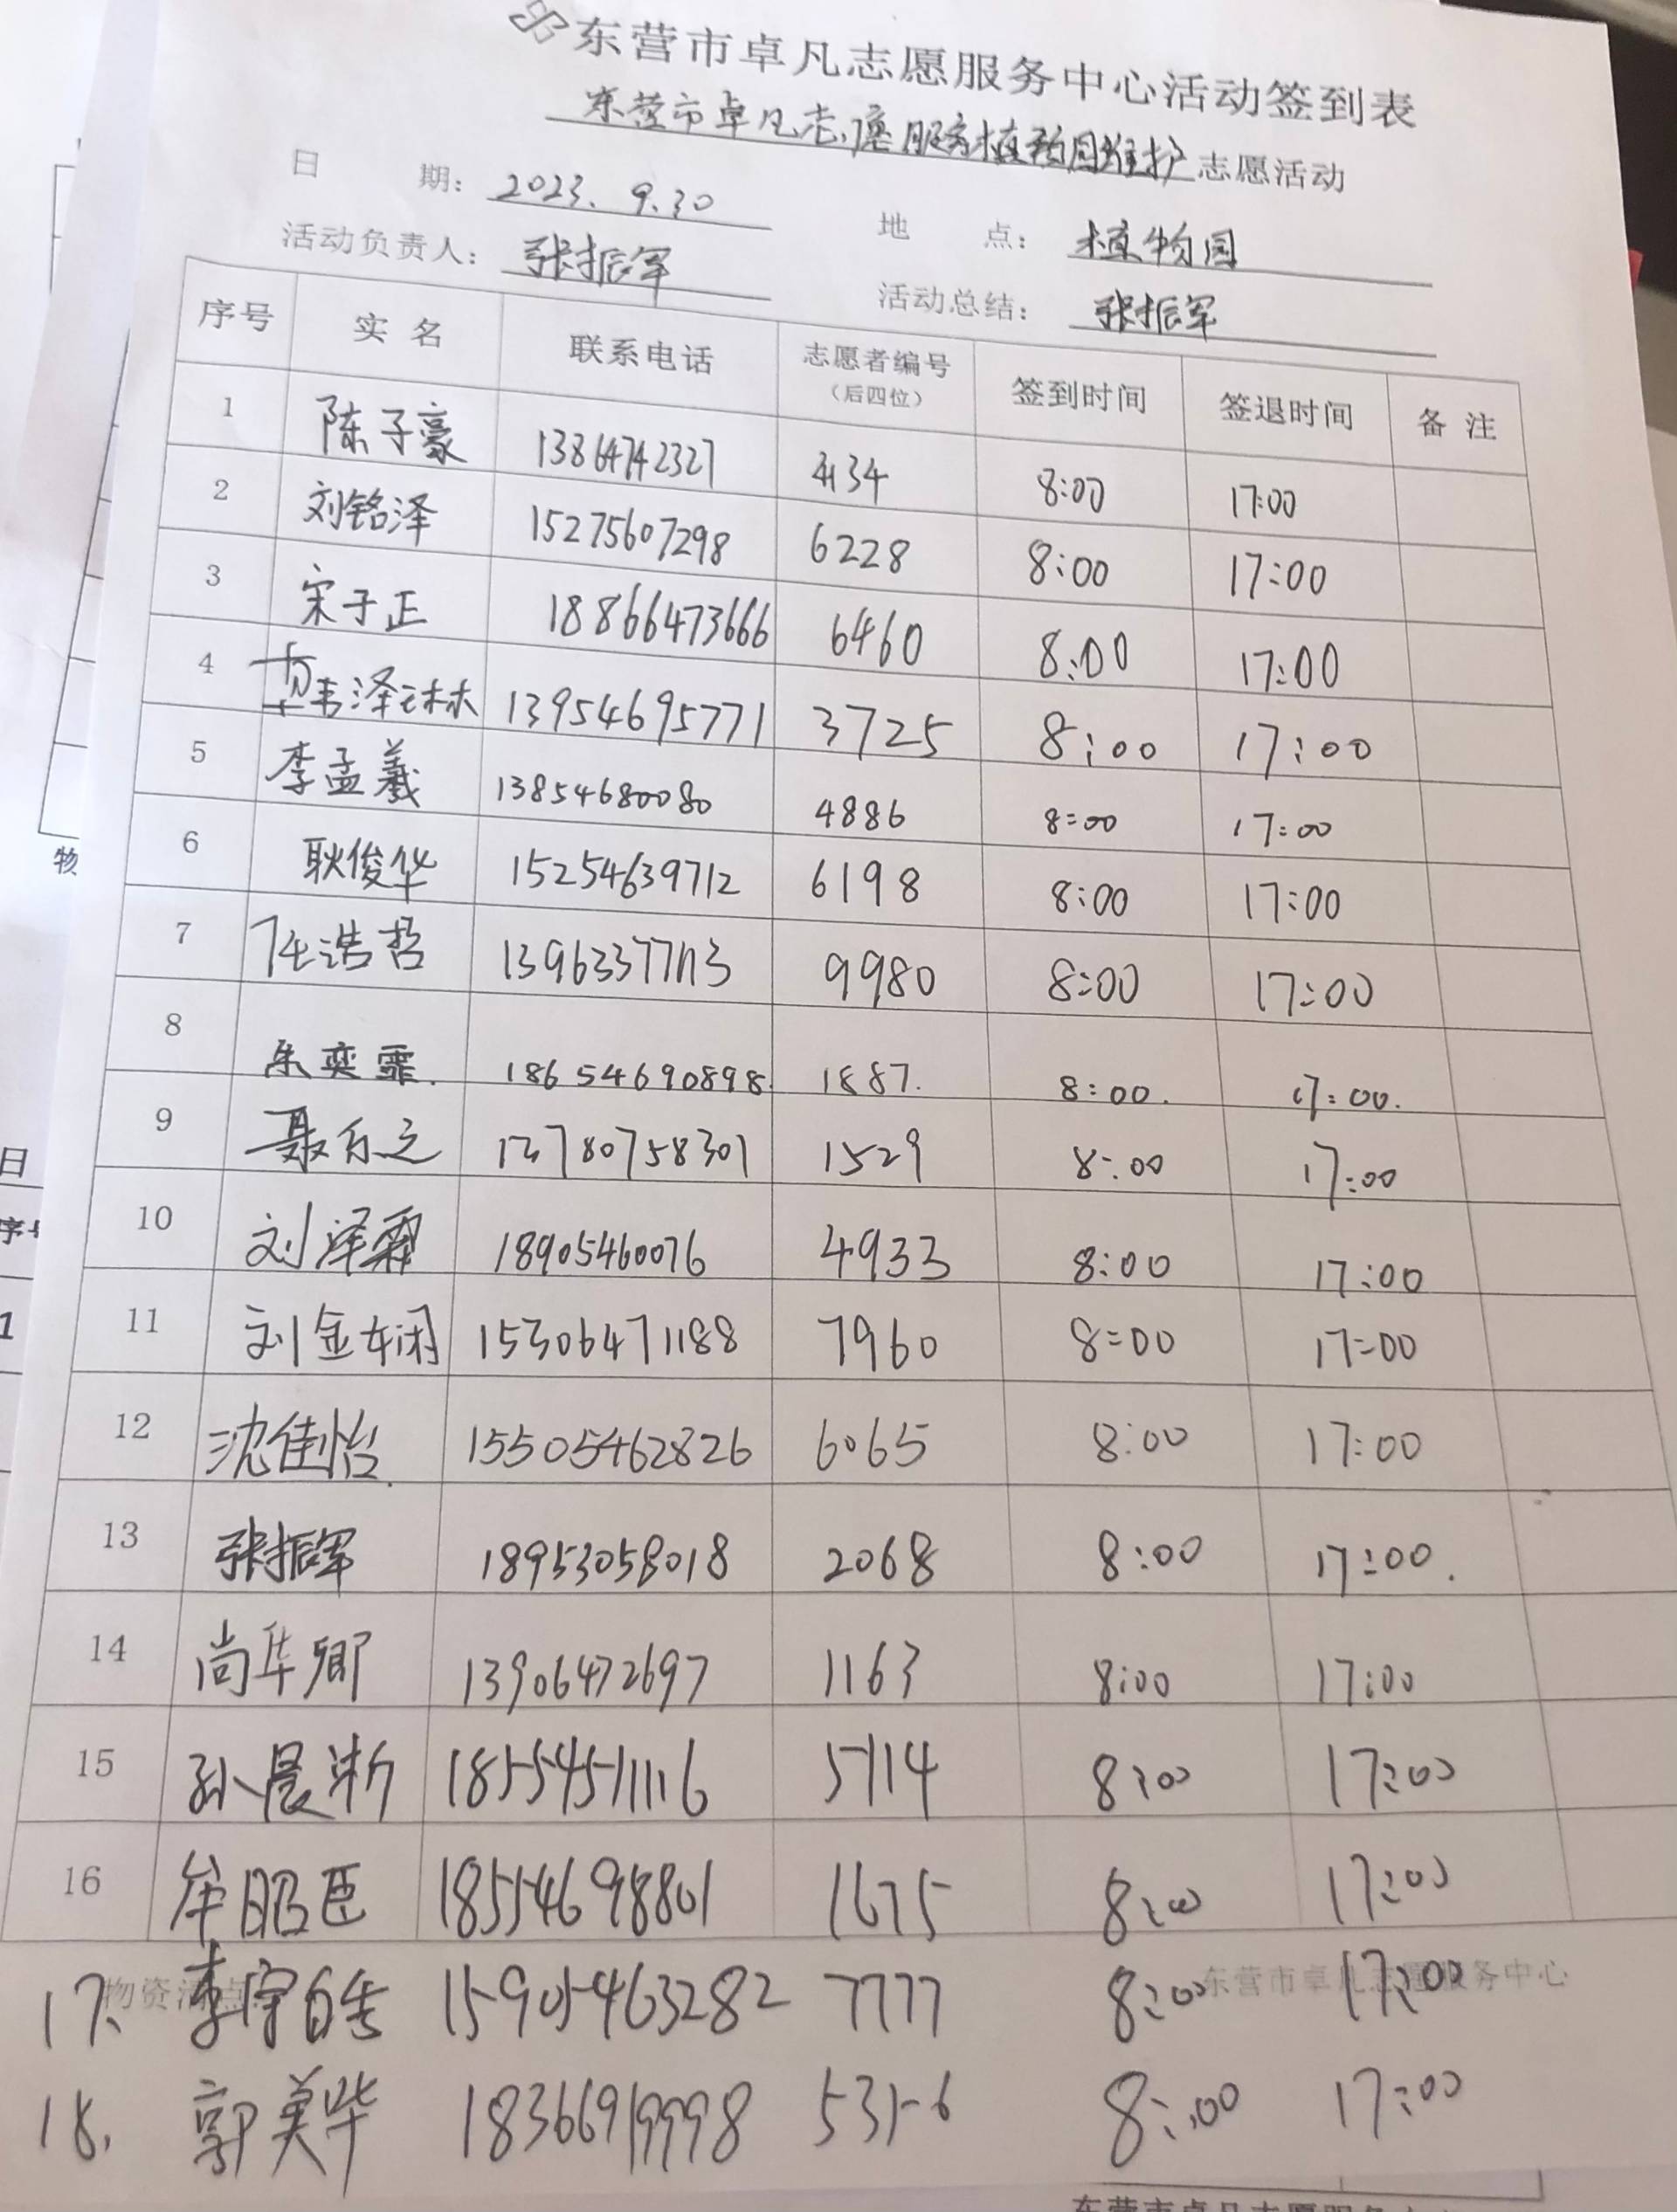 东营市卓凡志愿服务中心活动签到表
东营市卓凡志愿服务植物园维护志愿活动
日 期: 2023.9.30 地 点: 植物园
活动负责人: 张振军 活动总结: 张振军
序号 实 名 联系电话 志愿者编号(后四位) 签到时间 签退时间 备 注
1 陈子豪 13864742327 4134 8:00 17:00
2 刘铭泽 15275607298 6228 8:00 17:00
3 宋于正 18866473666 6460 8:00 17:00
4 13954695771 3725 8:00 17:00
5 李孟羲 13854680080 4886 8:00 17:00
6 耿俊华 15254639712 6198 8:00 17:00
7 任浩哲 13963377113 9980 8:00 17:00
8 奕霏 18654690898 1887. 8:00. 17:00.
9 13780758301 1529 8:00 17:00
10 刘泽霖 18905460076 4933 8:00 17:00
11 刘金娴 15306471188 7960 8:00 17:00
12 沈佳怡 15505462826 6065 8:00 17:00
13 张振军 18953058018 2068 8:00 17:00.
14 尚华卿 13906472697 1163 8:00 17:00
15 孙晨淅 18554511116 5714 8:00 17:00
16 牟昭臣 18554698801 1675 8:00 17:00
物资清点: 东营市卓凡志愿服务中心
17、李宇皓 15905463282 7777 8:00 17:00
18. 郭美华 18366919998 5356 8:00 17:00
物
日
序号
1
东营市卓凡志愿服务